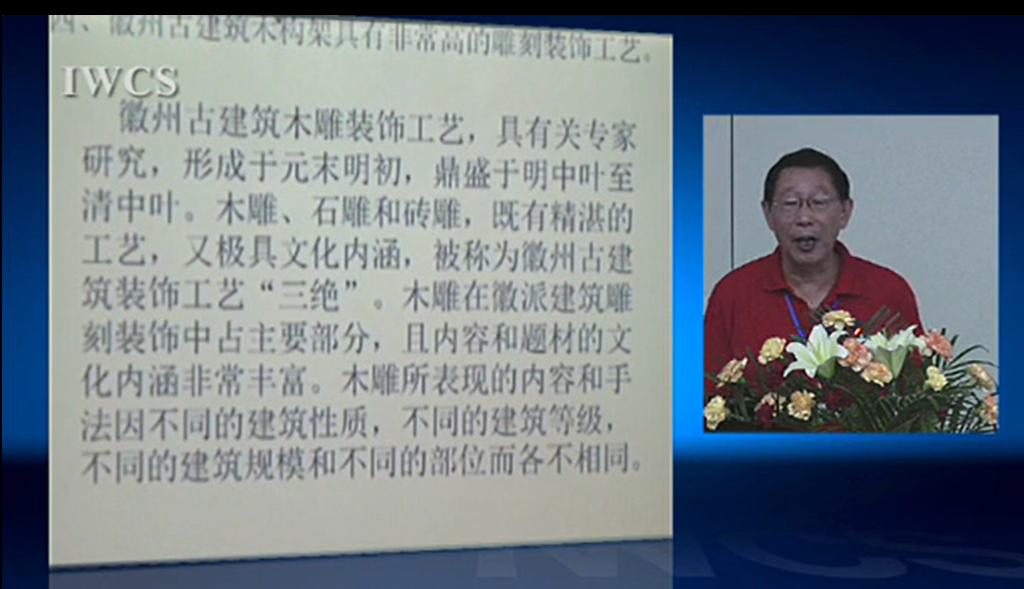 四、徽州古建筑木构架具有非常高的雕刻装饰工艺。
IWCS
徽州古建筑木雕装饰工艺，具有关专家
研究，形成于元末明初，鼎盛于明中叶至
清中叶。木雕、石雕和砖雕，既有精湛的
工艺，又极具文化内涵，被称为徽州古建
筑装饰工艺“三绝”。木雕在徽派建筑雕
刻装饰中占主要部分，且内容和题材的文
化内涵非常丰富。木雕所表现的内容和手
法因不同的建筑性质，不同的建筑等级，
不同的建筑规模和不同的部位而各不相同。
IWCS